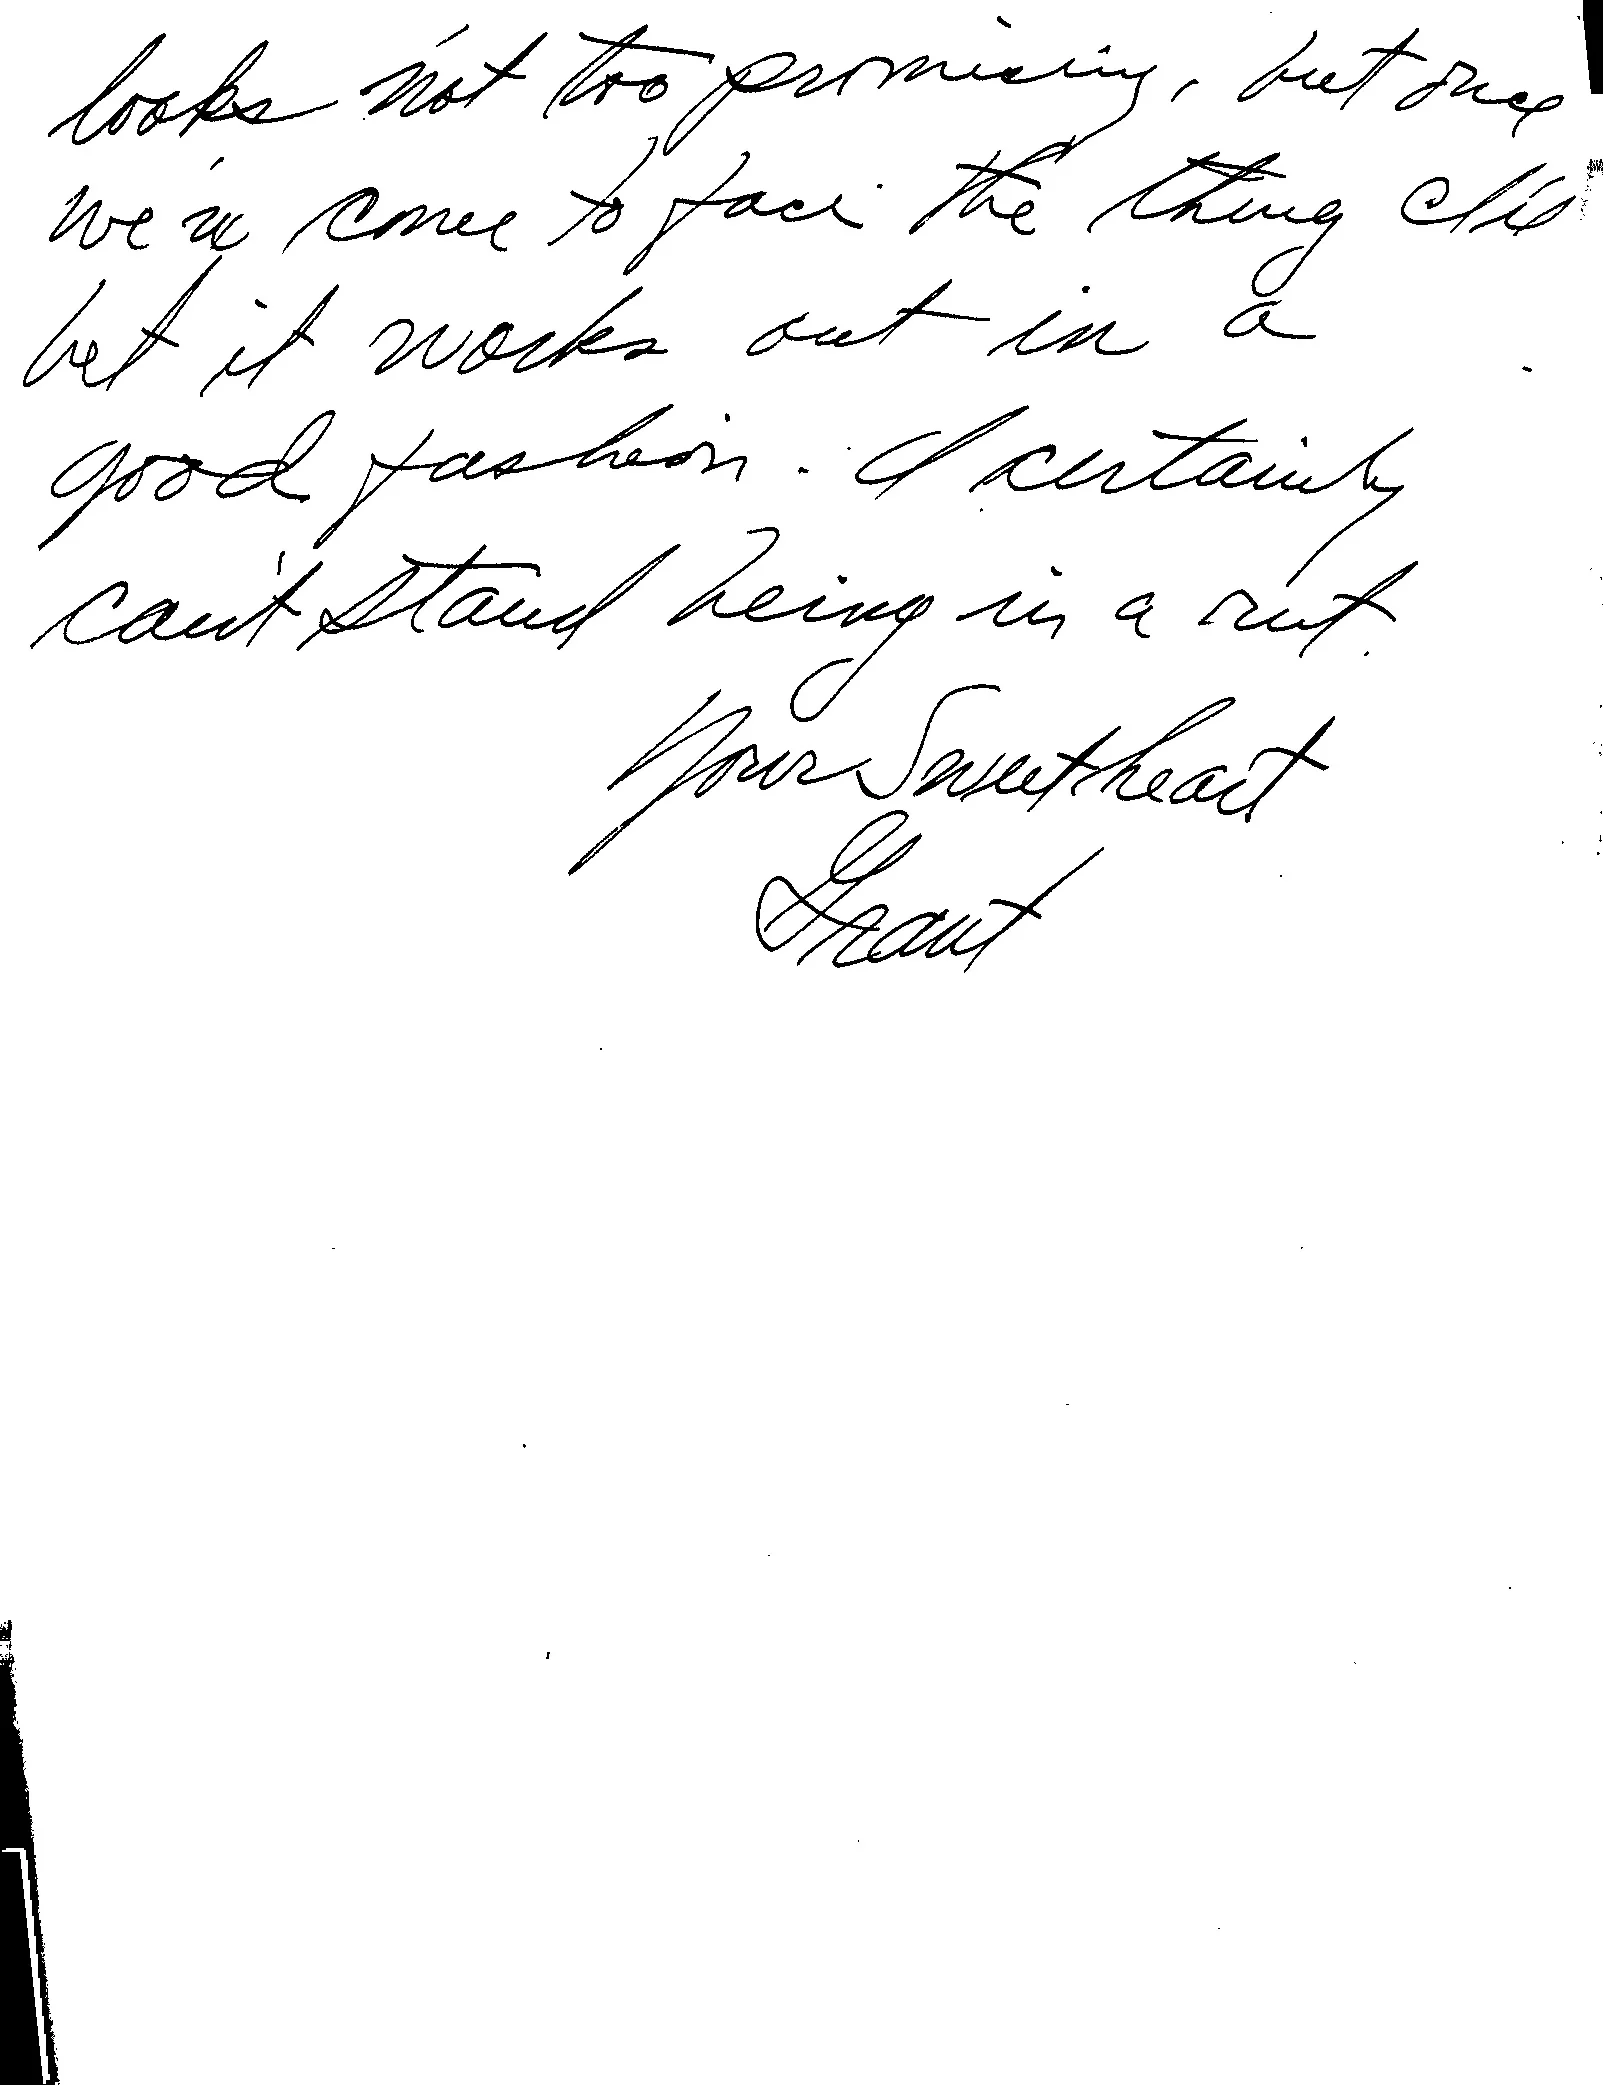 looks not too promising, but once
we've come to face the thing I'll
bet it works out in a
good fashion. I certainly
can't stand being in a rut.
Your Sweetheart
Grant